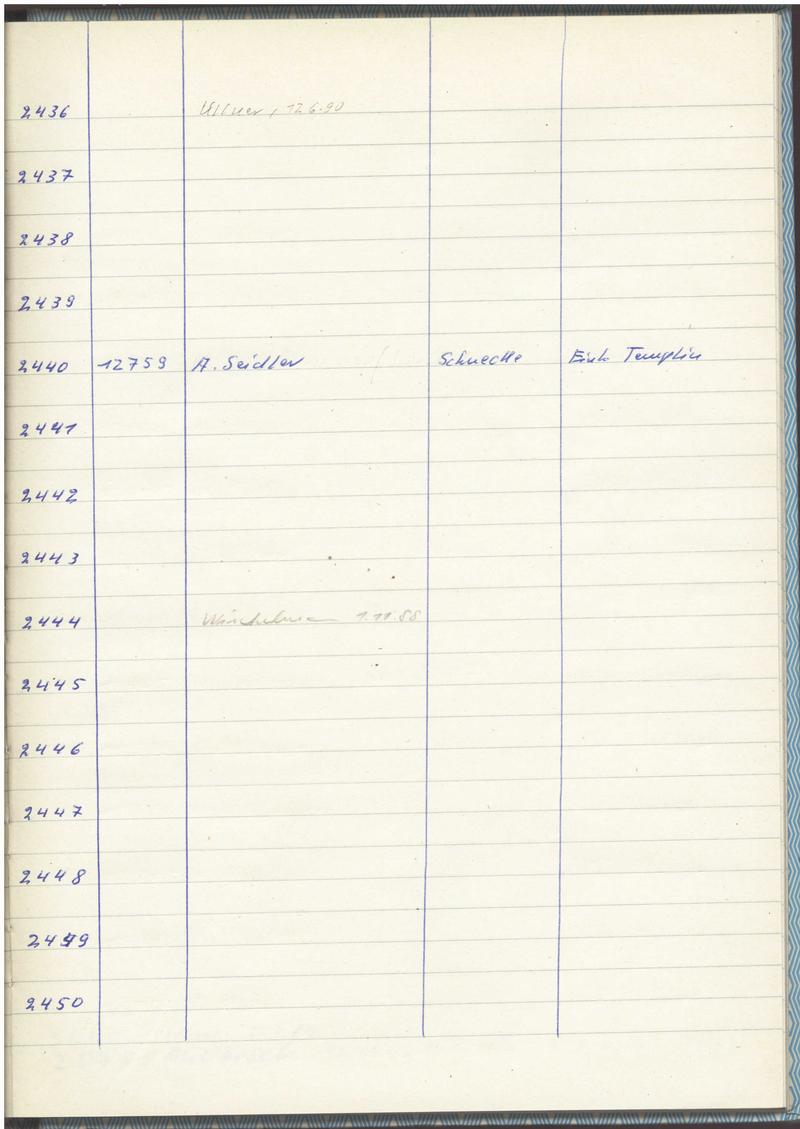 2436 Ullner, 12.6.90
2437
2438
2439
2440 12759 A. Seidler Schnecke Templin
2441
2442
2443
2444 1.11.88
2445
2446
2447
2448
2449
2450